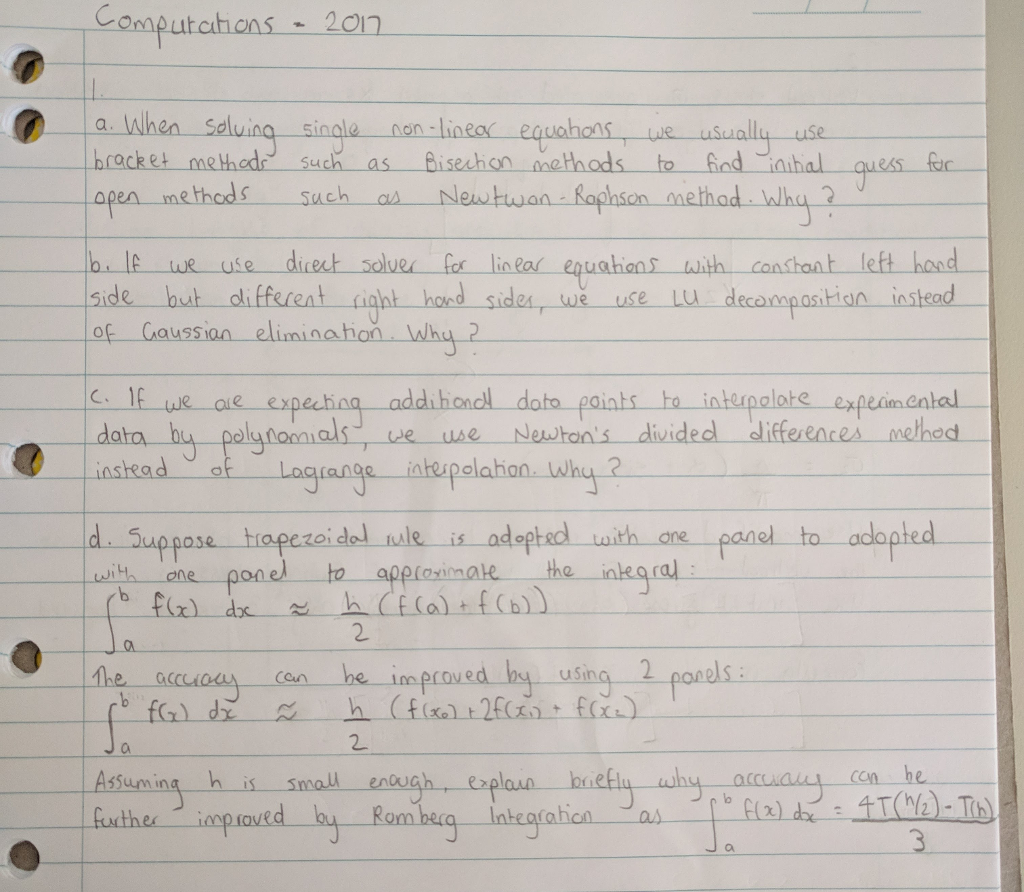 Computations - 2017
1.
a. When solving single non-linear equations, we usually use
bracket methods such as Bisection methods to find initial guess for
open methods such as Newtwon-Raphson method. Why?
b. If we use direct solver for linear equations with constant left hand
side but different right hand sides, we use LU decomposition instead
of Gaussian elimination. Why?
c. If we are expecting additional data points to interpolate experimental
data by polynomials, we use Newton's divided differences method
instead of Lagrange interpolation. Why?
d. Suppose trapezoidal rule is adopted with one panel to adopted
with one panel to approximate the integral:
∫_a^b f(x) dx ≈ h/2 (f(a) + f(b))
The accuracy can be improved by using 2 panels:
∫_a^b f(x) dx ≈ h/2 (f(x₀) + 2f(x₁) + f(x₂)
Assuming h is small enough, explain briefly why accuracy can be
further improved by Romberg Integration as ∫_a^b f(x) dx = (4T(h/2) - T(h))/3